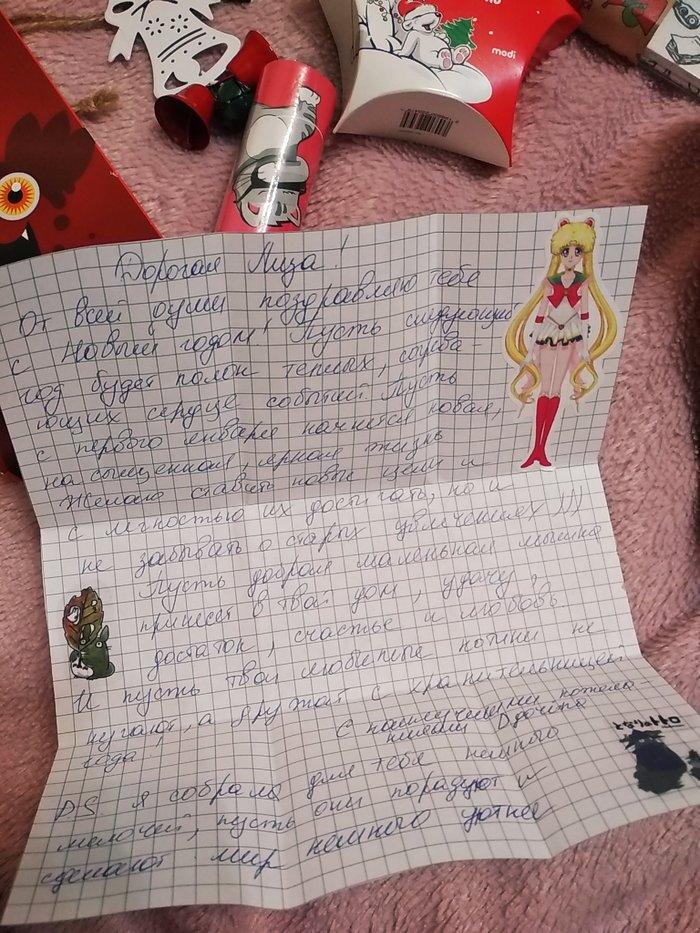 modi
Дорогая Лиза!
От всей души поздравляю тебе
с Новым годом! Пусть следующий
год будет полон теплых, согрева-
ющих сердце событий. Пусть
с первого января начнется новая,
насыщенная, яркая жизнь
Желаю ставить новые цели и
с лёгкостью их достигать, но и
не забывать о старых увлечениях)))
Пусть добрая маленькая мышка
принесет в твой дом, удачу,
достаток, счастье и любовь
И пусть твои любимые котики не
пугают, а дружат с хранительницей
года!
С наилучшими пожела
ниями
P.S. я собрала для тебя немного
мелочей, пусть они порадуют и
сделают мир немного уютнее